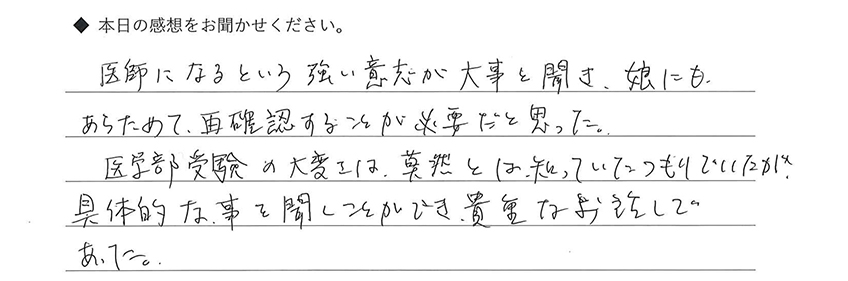 ◆ 本日の感想をお聞かせください。
医師になるという強い意志が大事と聞き、娘にも
あらためて、再確認することが必要だと思った。
医学部受験の大変さは、漠然とは、知っていたつもりでいたが、
具体的な、事を聞くことができ、貴重なお話しで
あった。